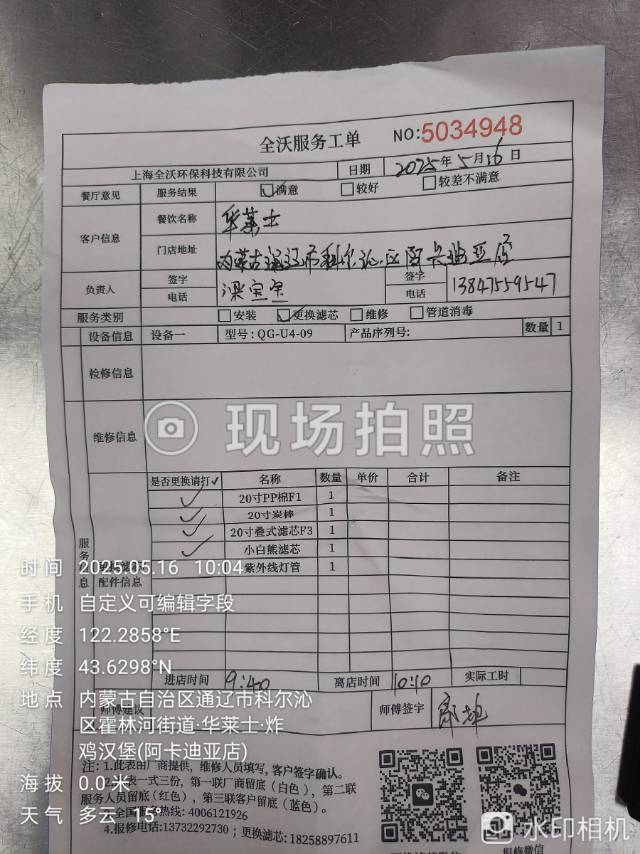 全沃服务工单 NO:5034948
上海全沃环保科技有限公司 日期 2025年5月16日
餐厅意见 服务结果 满意 较好 较差不满意
客户信息 餐饮名称 华莱士
门店地址 内蒙古通辽市科尔沁区阿卡迪亚店
负责人 签字 签字
电话 电话 13847559547
服务类别 安装 更换滤芯 维修 管道消毒
设备信息 设备一 型号: QG-U4-09 产品序列号: 数量 1
检修信息
维修信息
现场拍照
是否更换请打✓ 名称 数量 单价 合计 备注
✓ 20寸PP棉F1 1
✓ 20寸炭棒 1
✓ 20寸叠式滤芯F3 1
✓ 小白熊滤芯 1
紫外线灯管 1
服务 息
配件信息
时间 2025.05.16 10:04
手机 自定义可编辑字段
经度 122.2858°E
纬度 43.6298°N
地点 内蒙古自治区通辽市科尔沁
区霍林河街道·华莱士·炸
鸡汉堡(阿卡迪亚店)
海拔 0.0米
天气 多云 15°
进店时间 9:40 离店时间 10:10 实际工时
师傅建议 师傅签字
注: 1.此表由厂商提供，维修人员填写，客户签字确认。
表一式三份，第一联厂商留底（白色），第二联
服务人员留底(红色)，第三联客户留底（蓝色）。
全国服务热线: 4006121926
4.报修电话:13732292730；更换滤芯: 18258897611
水印相机
报修微信